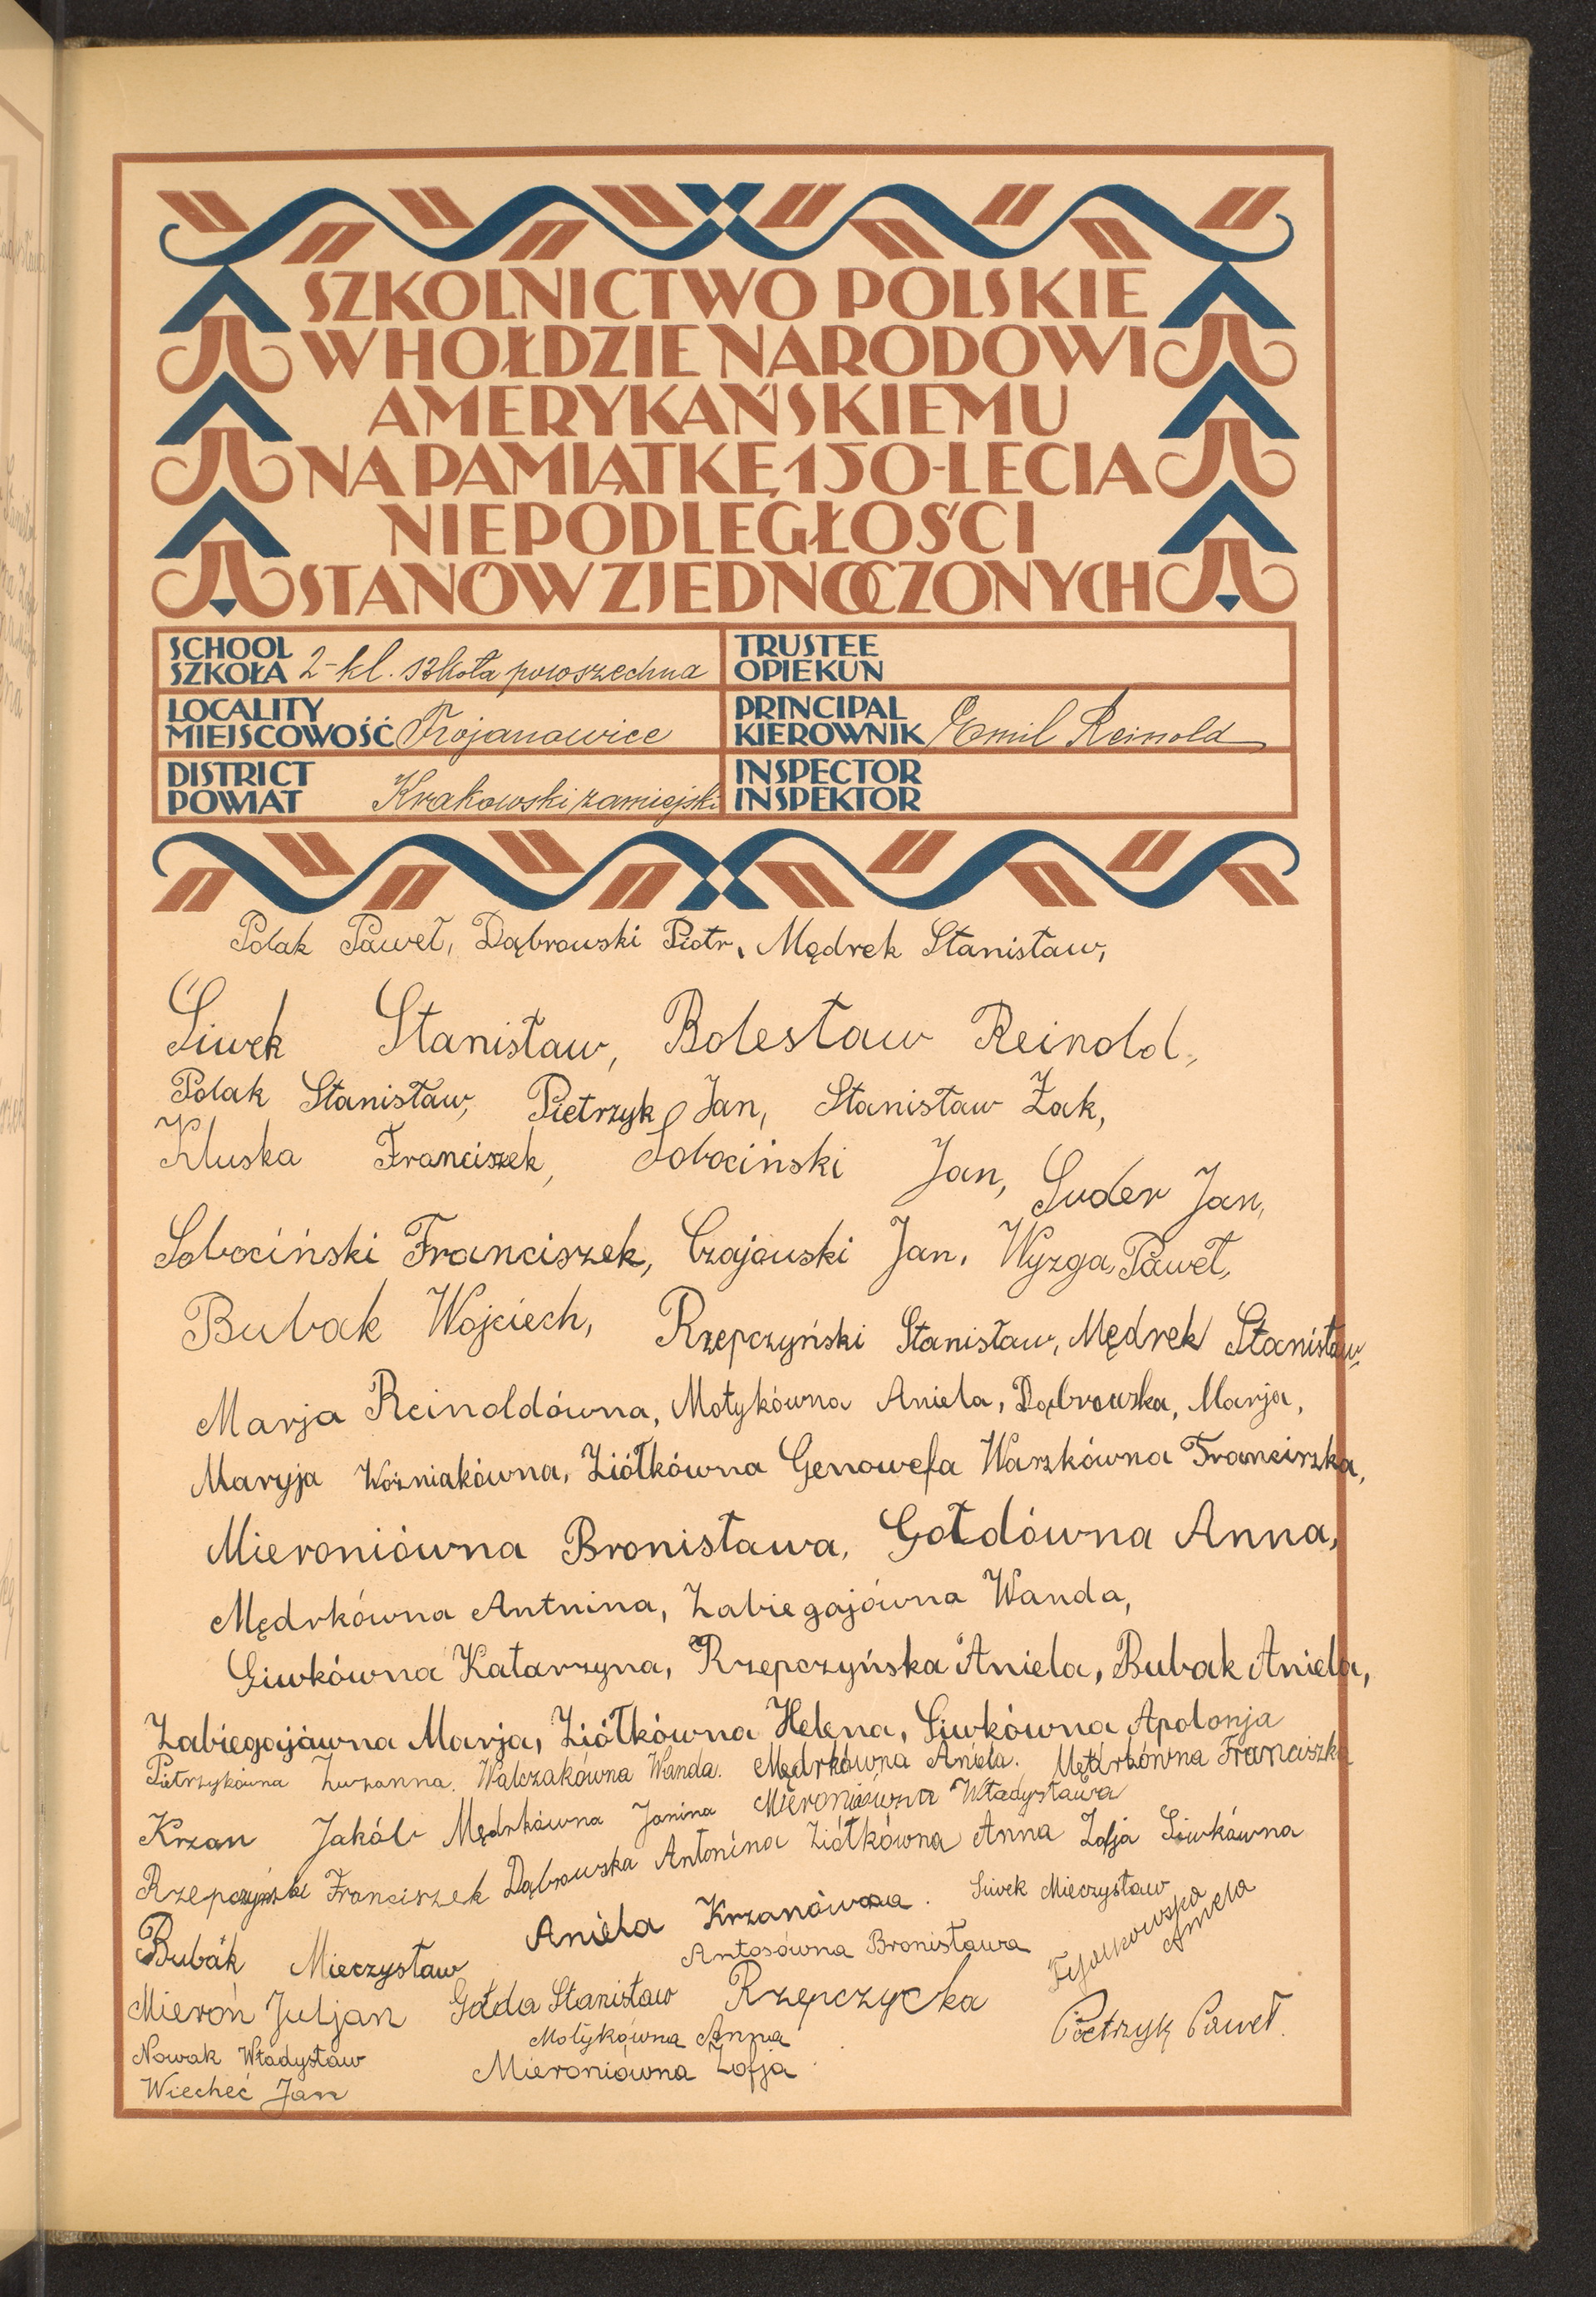 SZKOLNICTWO POLSKIE
W HOŁDZIE NARODOWI
AMERYKAŃSKIEMU
NA PAMIĄTKĘ 150-LECIA
NIEPODLEGŁOŚCI
STANÓW ZJEDNOCZONYCH
SCHOOL
SZKOŁA 2-kl. szkoła powszechna
TRUSTEE
OPIEKUN
LOCALITY
MIEJSCOWOŚĆ Trojanowice
PRINCIPAL
KIEROWNIK Emil Reinold
DISTRICT
POWIAT Krakowski zamiejski
INSPECTOR
INSPEKTOR
Polak Paweł, Dąbrowski Piotr, Mądrek Stanisław,
Siwek Stanisław, Bolesław Reinold,
Polak Stanisław, Pietrzyk Jan, Stanisław Żak,
Kluska Franciszek, Sobociński Jan, Suder Jan,
Sobociński Franciszek, Czajowski Jan, Wyzga Paweł,
Bubak Wojciech, Rzepczyński Stanisław, Mędrek Stanisław,
Marja Reinoldówna, Motykówna Aniela, Dąbrowska, Marja,
Maryja Woźniakówna, Ziółkówna Genowefa Warzkówna Franciszka,
Mieroniówna Bronisława, Gołdówna Anna,
Mędrkówna Antnina, Zabiegajówna Wanda,
Siwkówna Katarzyna, Rzepczyńska Aniela, Bubak Aniela,
Zabiegajówna Marja, Ziółkówna Helena, Siwkówna Apolonja
Pietrzykówna Zuzanna. Walczakówna Wanda. Mędrkówna Aniela. Mędrkówna Franciszka
Krzan Jakób Mędrkówna Janina Mieroniówna Władysława
Rzepczyński Franciszek Dąbrowska Antonina Ziółkówna Anna Zofja Siwkówna
Bubak Mieczysław Aniela Krzanówna. Siwek Mieczysław
Antosówna Bronisława
Aniela
Mieroń Juljan Gołda Stanisław Rzepczycka
Motykówna Anna
Pietrzyk Paweł.
Nowak Władysław
Mieroniówna Zofja
Wiecheć Jan